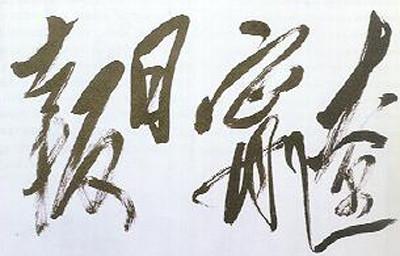 遼寧日報